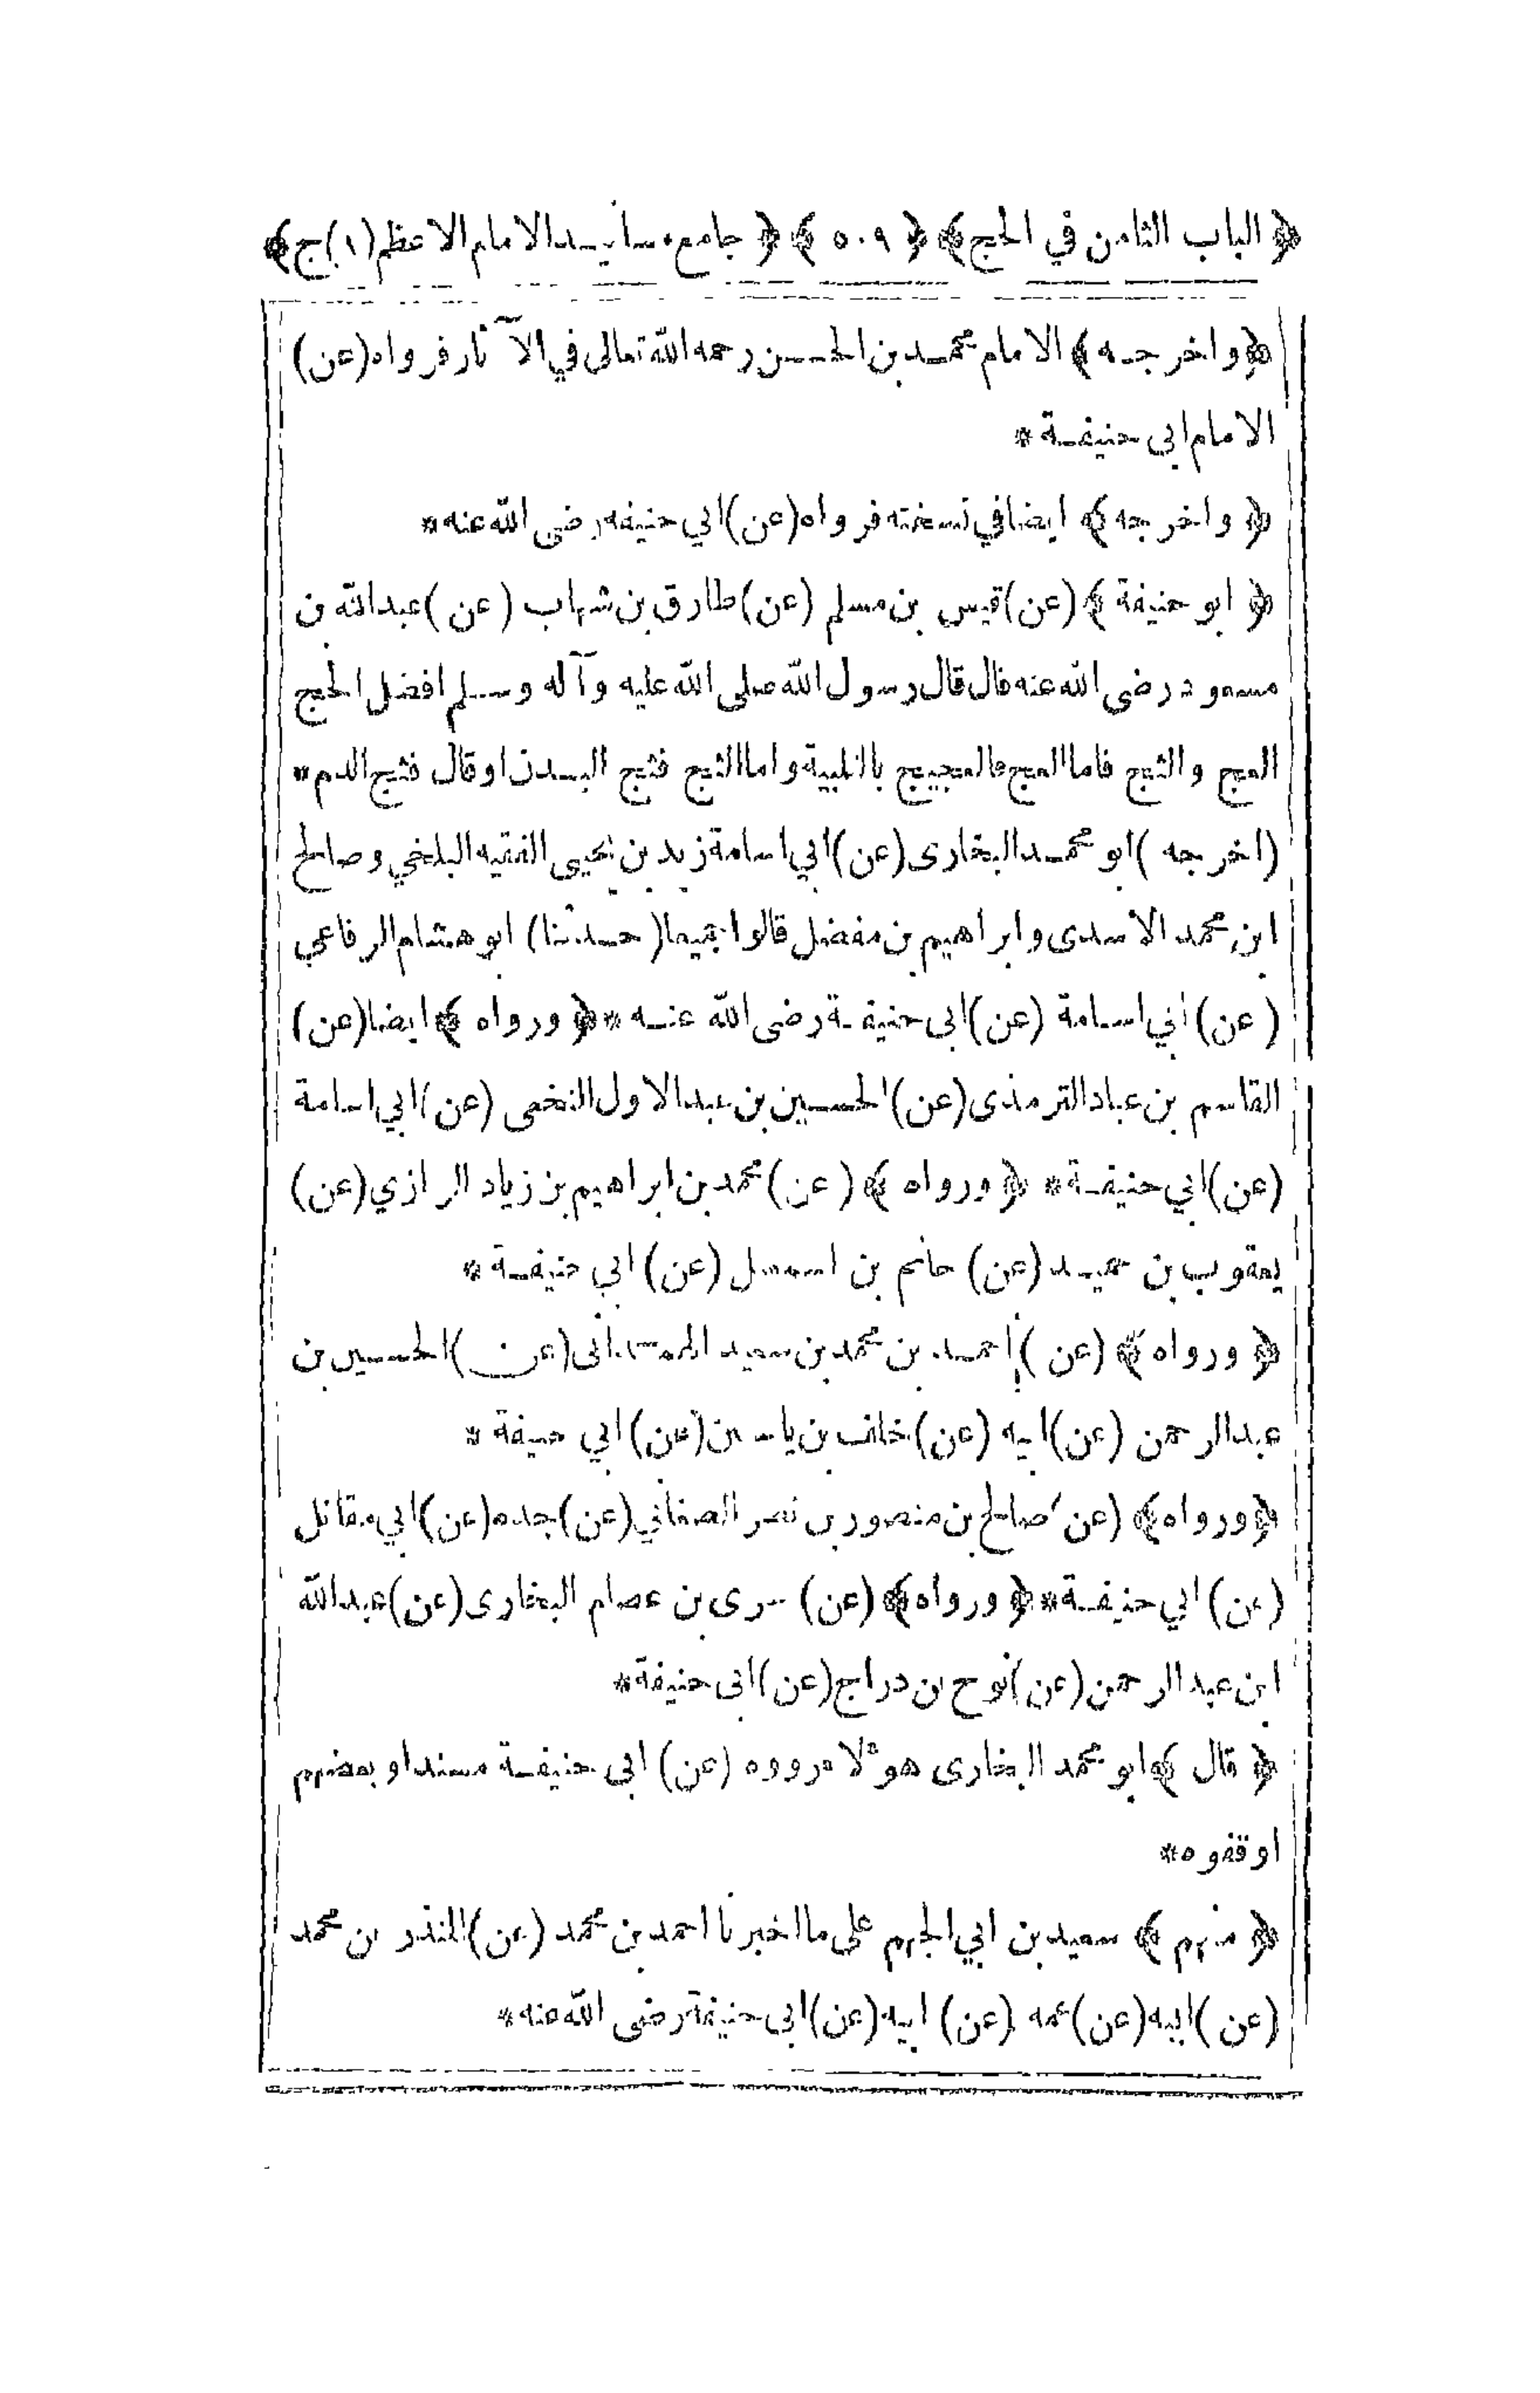 ﴿ الباب الثامن في الحج ﴾ ﴿ ٥٠٩ ﴾ ﴿ جامع مسانيد الامام الاعظم (١) ج ﴾
﴿ واخرجه ﴾ الامام محمد بن الحسن رحمه الله تعالى في الآثار فرواه (عن)
الامام ابى حنيفة *
﴿ واخرجه ﴾ ايضا في نسخته فرواه (عن) ابي حنيفه رضى الله عنه *
﴿ ابو حنيفة ﴾ (عن) قيس بن مسلم (عن) طارق بن شهاب (عن) عبد الله بن
مسعود رضى الله عنه قال قال رسول الله صلى الله عليه وآله وسلم افضل الحج
العج والثج فاما العج فالعجيج بالتلبية واما الثج فثج البدن او قال فثج الدم *
(اخرجه) ابو محمد البخارى (عن) ابي اسامة زيد بن يحيى الفقيه البلخي وصالح
ابن محمد الاسدى وابراهيم بن مفضل قالوا جميعا (حدثنا) ابو هشام الرفاعي
(عن) ابي اسامة (عن) ابى حنيفة رضى الله عنه * ﴿ ورواه ﴾ ايضا (عن)
القاسم بن عباد الترمذى (عن) الحسين بن عبد الاول النخعى (عن) ابي اسامة
(عن) ابي حنيفة * ﴿ ورواه ﴾ (عن) محمد بن ابراهيم بن زياد الرازي (عن)
يعقوب بن حميد (عن) حاتم بن اسمعيل (عن) ابي حنيفة *
﴿ ورواه ﴾ (عن) احمد بن محمد بن سعيد الهمدانى (عن) الحسين بن
عبد الرحمن (عن) ابيه (عن) خلف بن ياسين (عن) ابي حنيفة *
﴿ ورواه ﴾ (عن) صالح بن منصور بن نصر الصغاني (عن) جده (عن) ابي مقاتل
(عن) ابي حنيفة * ﴿ ورواه ﴾ (عن) سرى بن عصام البخارى (عن) عبد الله
ابن عبد الرحمن (عن) نوح بن دراج (عن) ابى حنيفة *
﴿ قال ﴾ ابو محمد البخارى هؤلاء رووه (عن) ابى حنيفة مسندا وبعضهم
اوقفوه *
﴿ منهم ﴾ سعيد بن ابي الجهم على ما اخبرنا احمد بن محمد (عن) المنذر بن محمد
(عن) ابيه (عن) عمه (عن) ابيه (عن) ابى حنيفة رضى الله عنه *